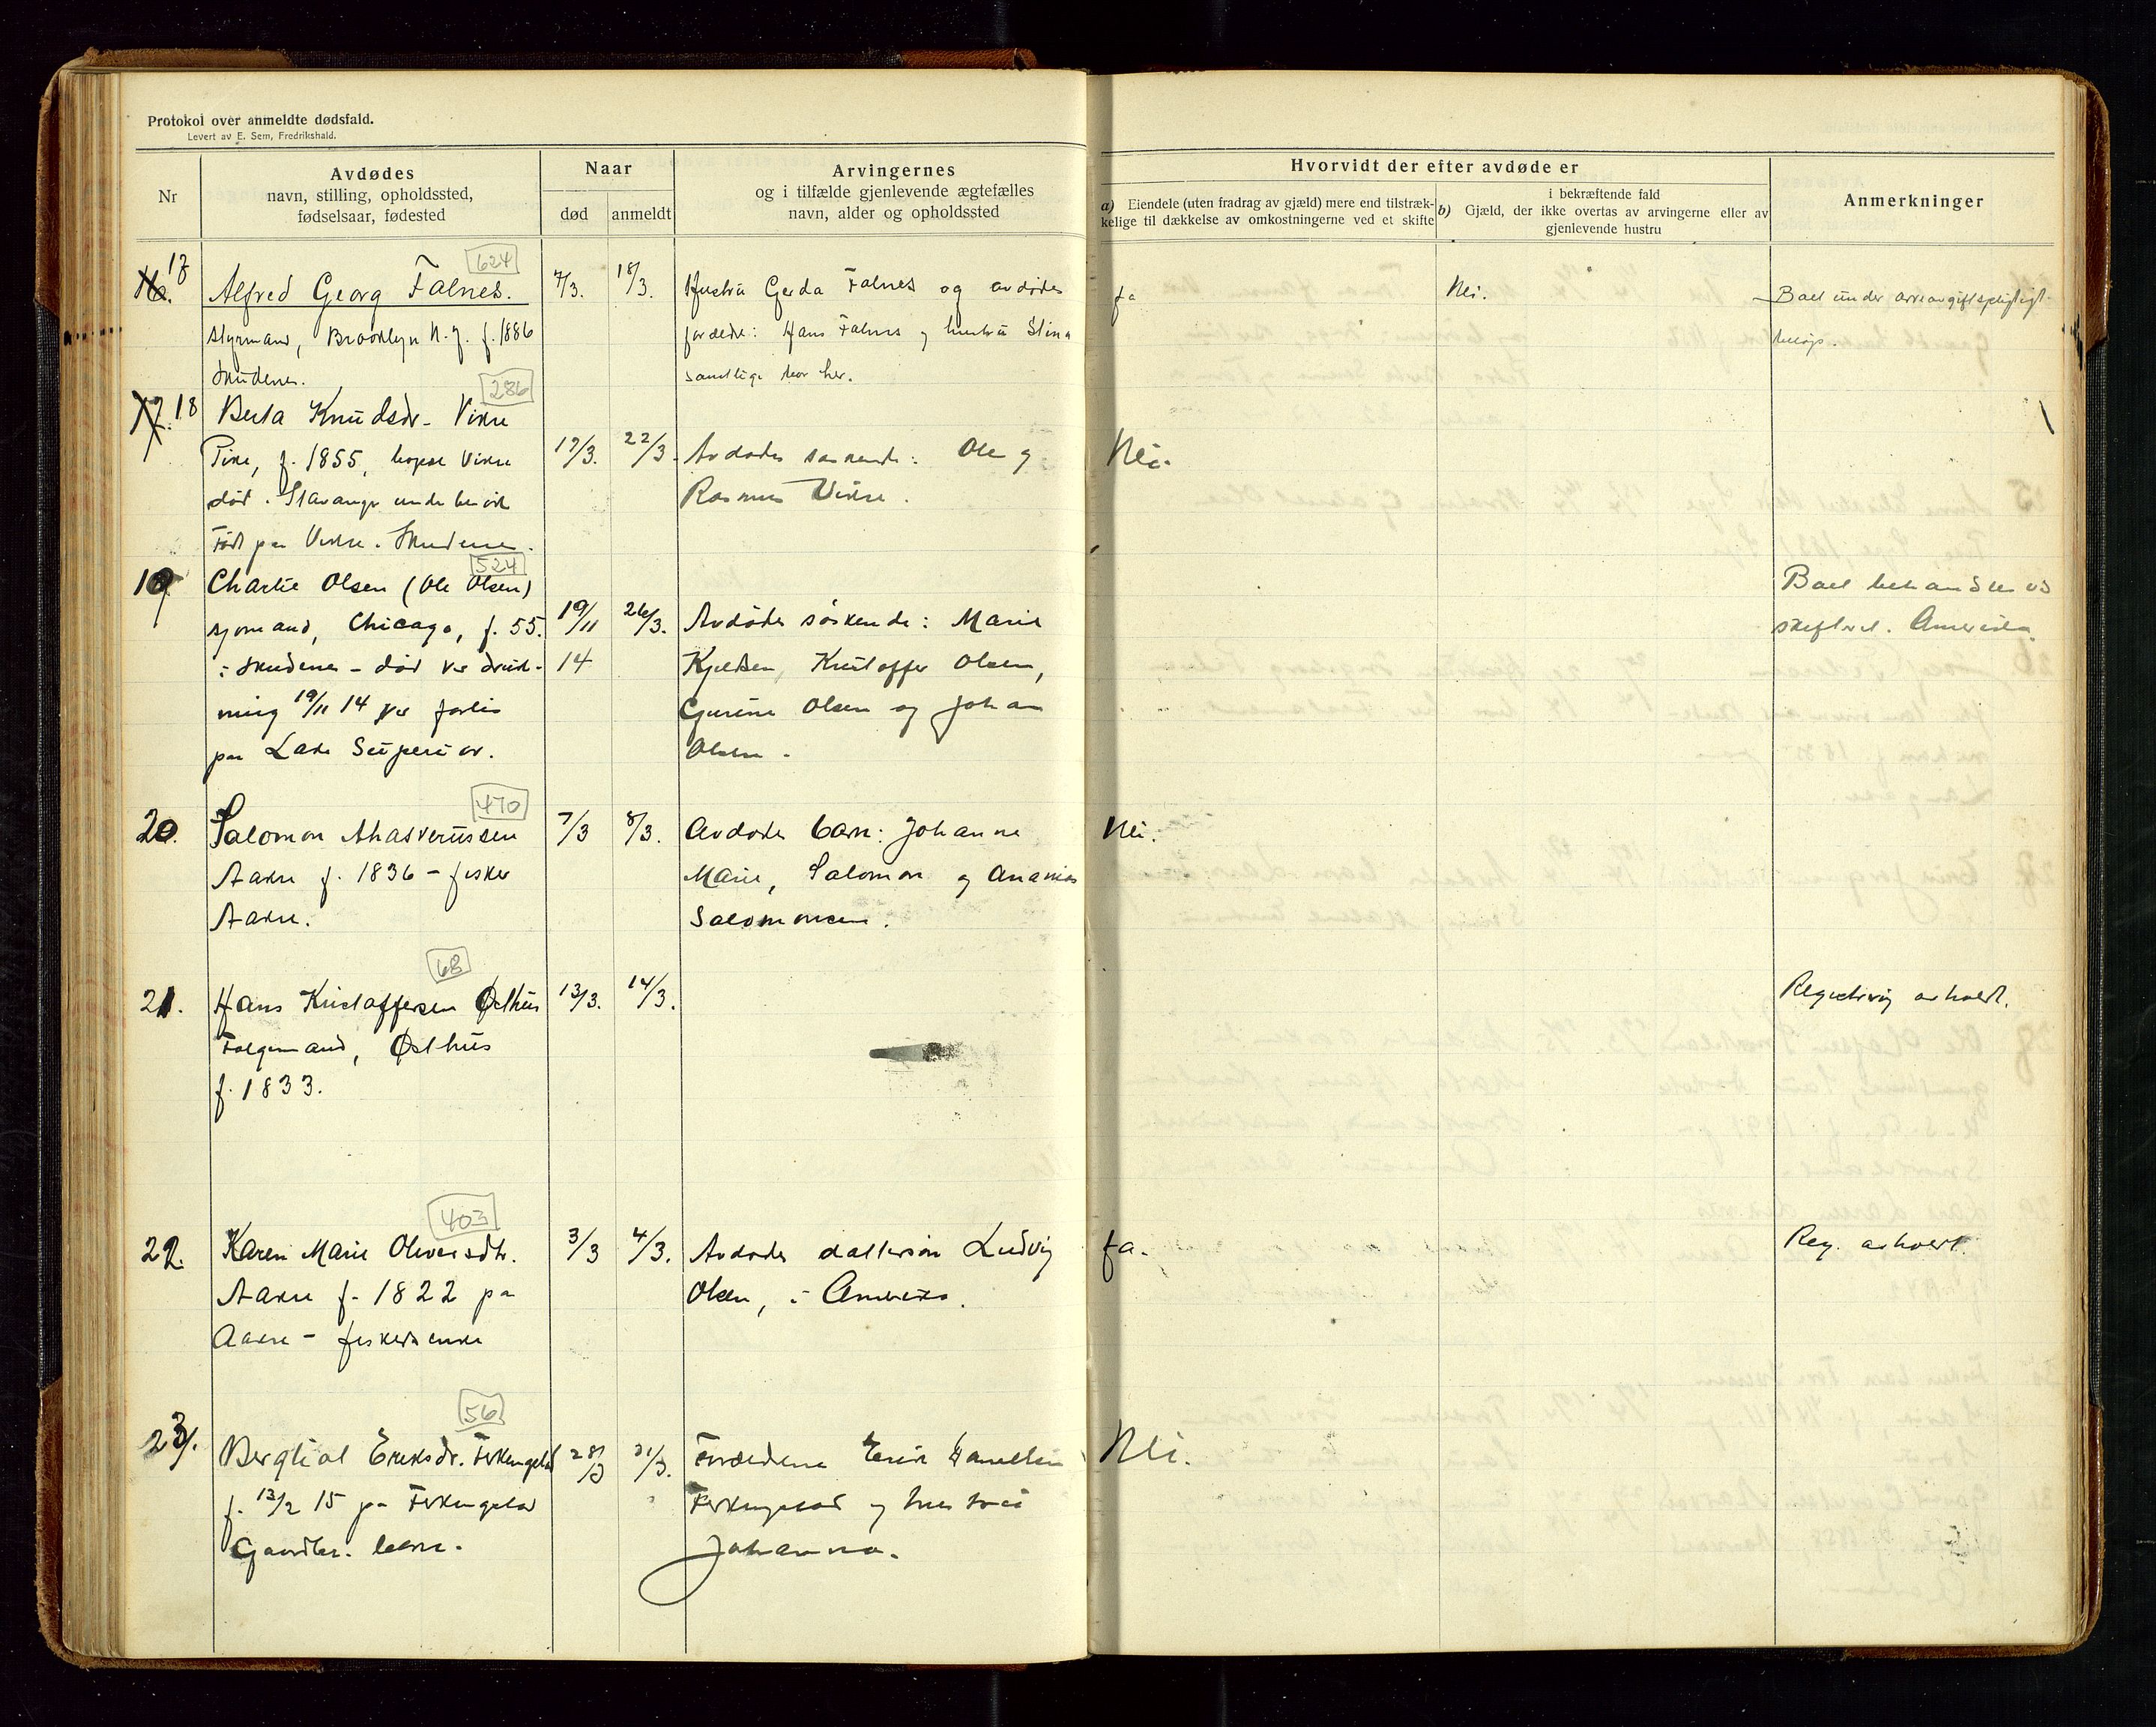 Protokol over anmeldte dødsfald.
Levert av E. Sem, Fredrikshald.
Nr
Avdødes
navn, stilling, opholdssted,
fødselsaar, fødested
Naar
død
anmeldt
Arvingernes
og i tilfælde gjenlevende ægtefælles
navn, alder og opholdssted
Hvorvidt der efter avdøde er
a) Eiendele (uten fradrag av gjæld) mere end tilstræk-
kelige til dækkelse av omkostningerne ved et skifte
i bekræftende fald
b) Gjæld, der ikke overtas av arvingerne eller av
gjenlevende hustru
Anmerkninger
16. 17
624
Alfred Georg Falnes.
styrmand, Brooklyn N.Y. f. 1886
Skudenes.
7/3.
18/3.
Hustru Gerda Falnes og avdødes
forældre: Hans Falnes og hustru Stina
samtlige bor her.
Ja
Nei.
Boet under arveavgiftspligtigt
beløp.
17. 18
286
Berta Knudsdr. Vikre
Pike, f. 1855, bopæl Vikre
død i Stavanger under besøk
Født paa Vikre i Skudenes.
17/3.
22/3.
Avdødes søskende: Ole og
Rasmus Vikre.
Nei.
19
524
Charlie Olsen (Ole Olsen)
sjømand, Chicago, f. 55.
i Skudenes - død ved druk-
ning 19/11 14 ved forlis
paa Lake Superior.
19/11
14
26/3.
Avdødes søskende: Marie
Kjeldsen, Kristoffer Olsen,
Gurine Olsen og Johan
Olsen.
Boet behandles ved
skifteret i Amerika.
20.
470
Salomon Ahasverussen
Aakre f. 1836 - fisker
Aakre.
7/3
8/3.
Avdødes barn: Johanne
Marie, Salomon og Ananias
Salomonsen.
Nei.
21.
68
Hans Kristoffersen Østhus
Folgemand, Østhus
f. 1833.
13/3.
14/3.
Registrering avholdt.
22.
403
Karen Marie Oliversdtr.
Aakre f. 1822 paa
Aakre - fiskerenke
3/3
4/3.
Avdødes dattersøn Ludvig
Olsen, i Amerika.
Ja.
Reg. avholdt.
23.
56
Bergliot Eriksdr. Ferkingstad
f. 13/2 15 paa Ferkingstad
Gaardbr. barn.
28/3
31/3.
Forældrene Erik
Ferkingstad og hustru
Johanna.
Nei.